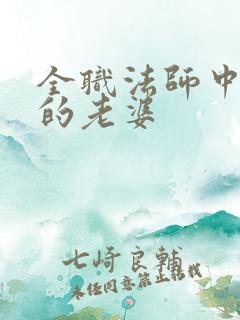 全職法師中
的老婆
七崎良輔
未经同意禁止转载